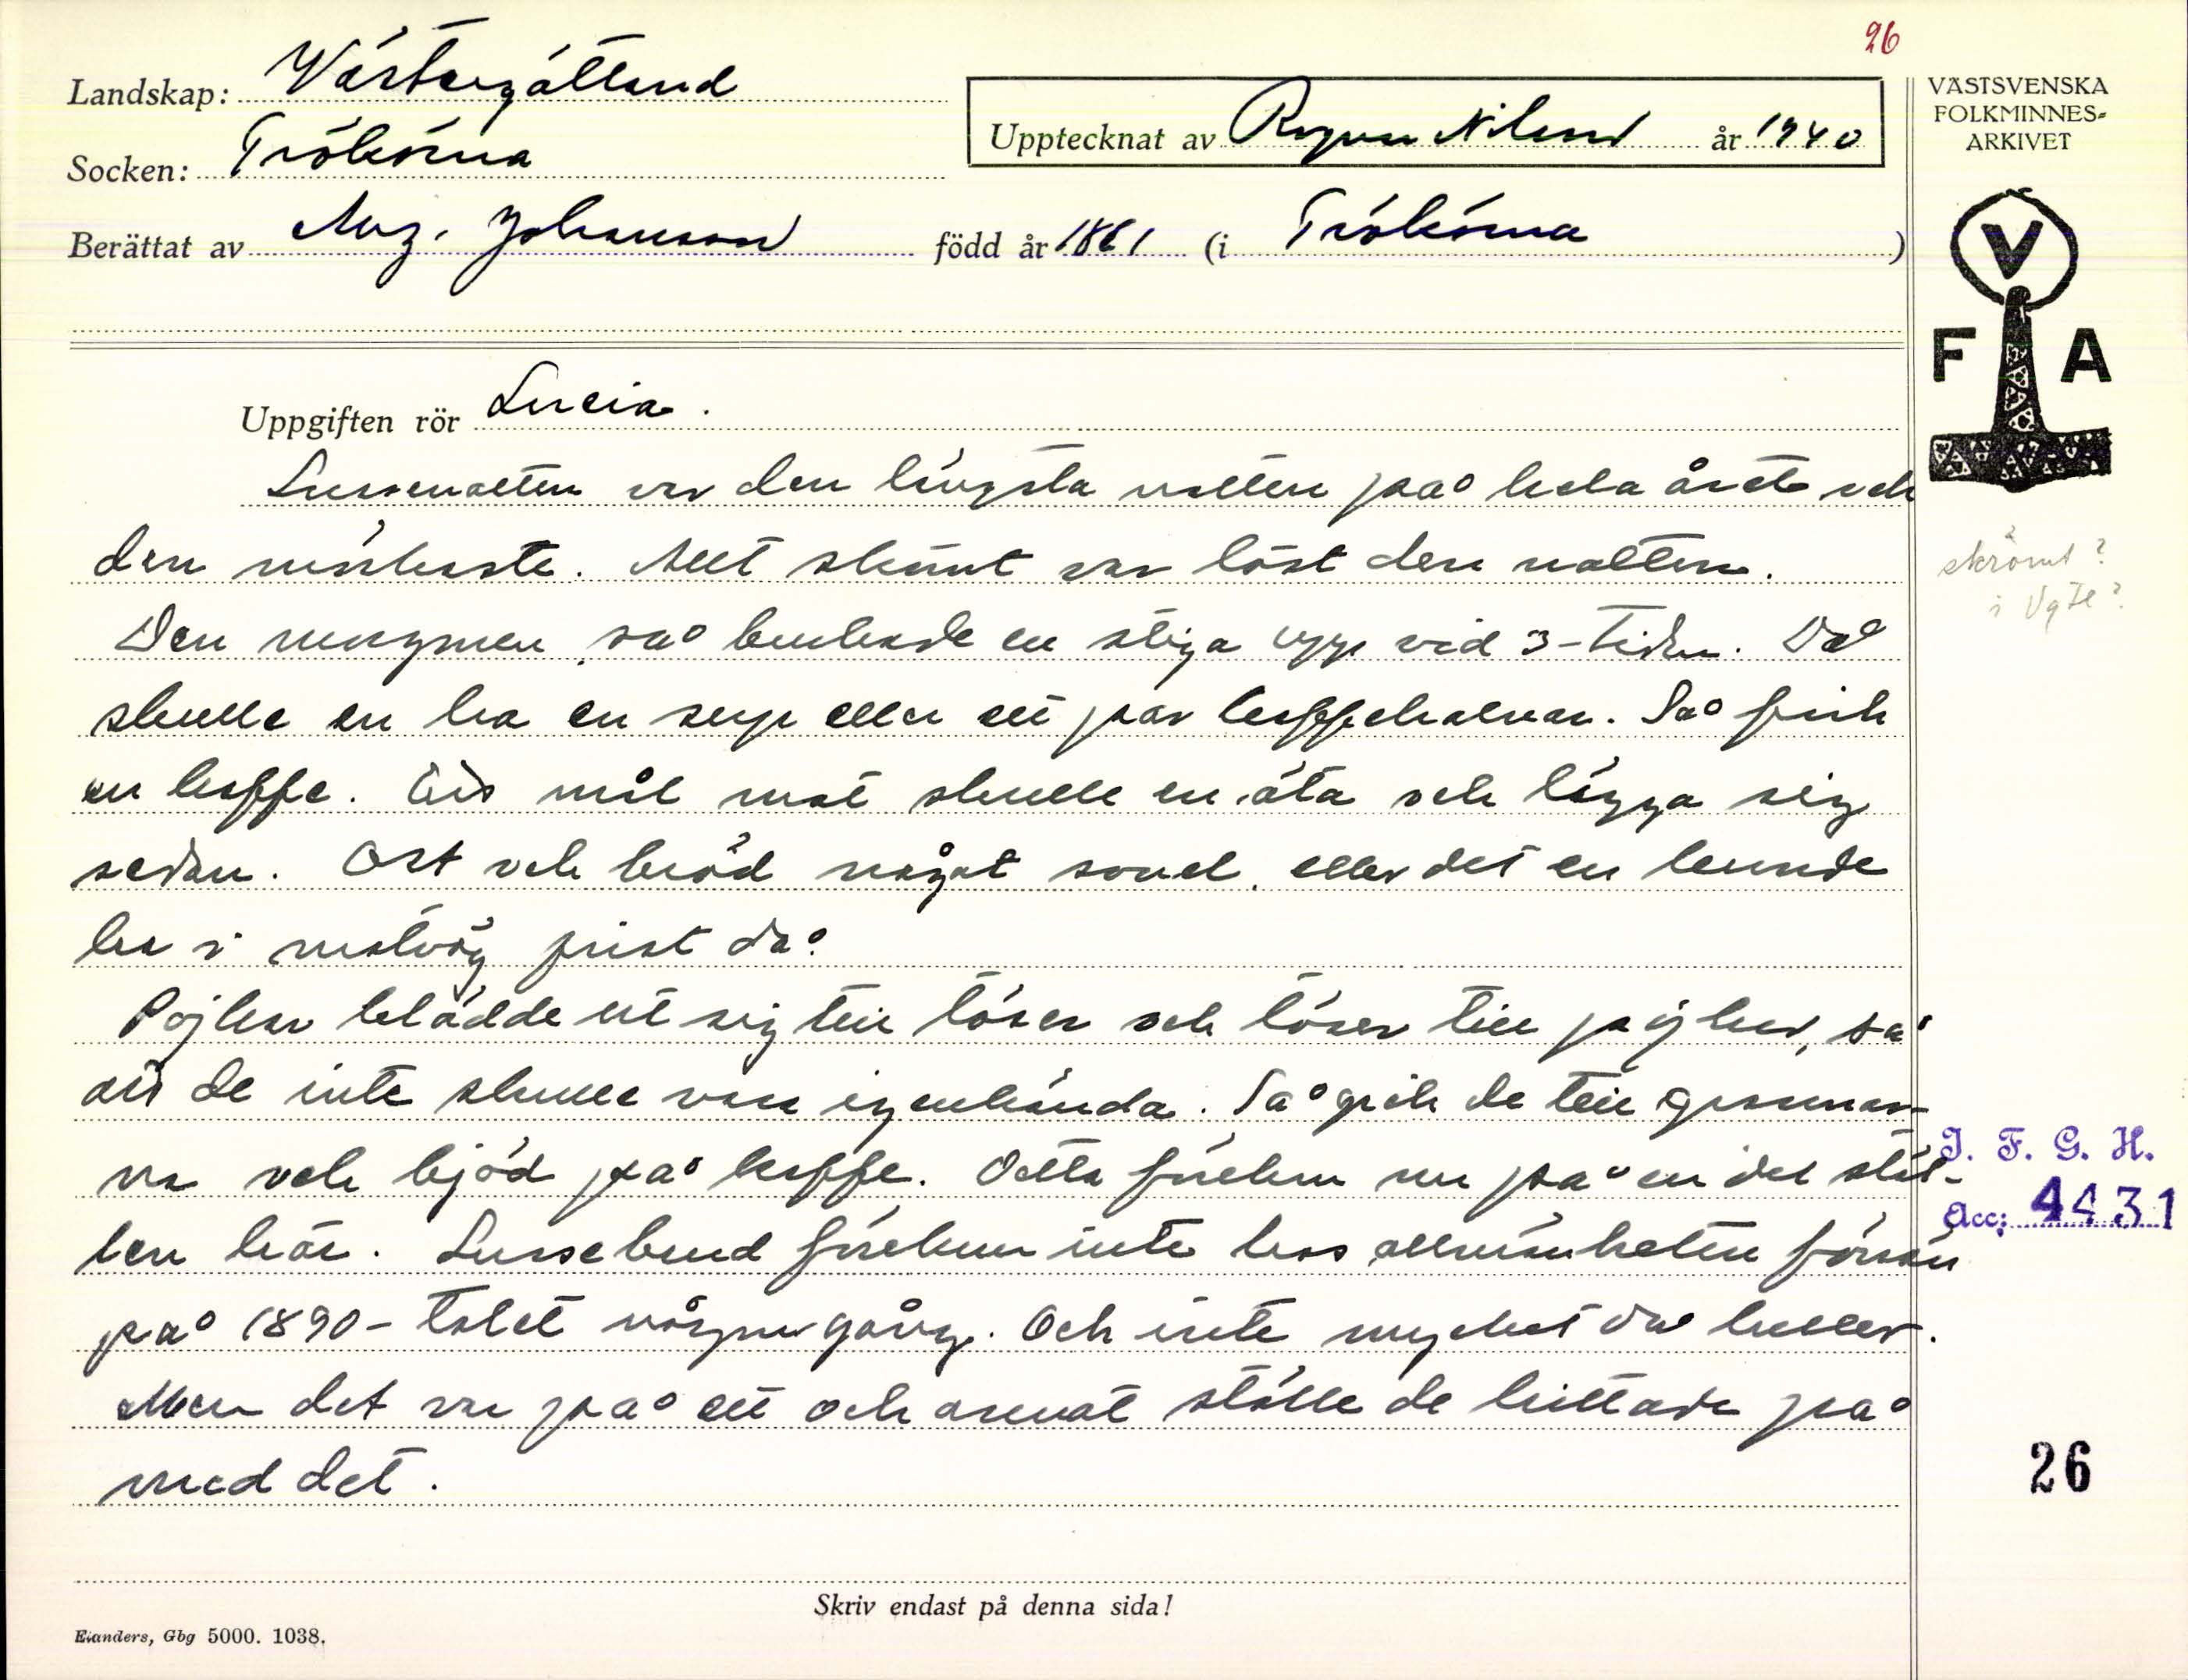 26
Landskap: Västergötland
Socken: Trökörna
Upptecknat av Ragnar Nilsson år 1940
Berättat av Aug. Johansson född år 1861 (i Trökörna)
VÄSTSVENSKA
FOLKMINNES-
ARKIVET
V
F A
Uppgiften rör Lucia.
Lussenatten var den längsta natten på hela året och
den mörkaste. Allt skrömt var löst den natten.
skrömt?
i Vgtl?
Den morgonen så brukade en stiga upp vid 3-tiden. Då
skulle en ha en sup eller ett par kaffehalvar. Så fick
en kaffe. Ett mål mat skulle en äta och lägga sig
sedan. Ost och bröd något sovel eller det en kunde
ha i matväg just då.
Pojkar klädde ut sig till töser och töser till pojkar, så
att de inte skulle vara igenkända. Så gick de till grannar-
na och bjöd på kaffe. Detta förekom nu på en del stäl-
len här. Lussebrud förekom inte hos allmänheten förrän
på 1890-talet någon gång. Och inte mycket då heller.
Men det var på ett och annat ställe de hittade på
med det.
I. F. G. H.
Acc: 4431
26
Skriv endast på denna sida!
Elanders, Gbg 5000. 1038.